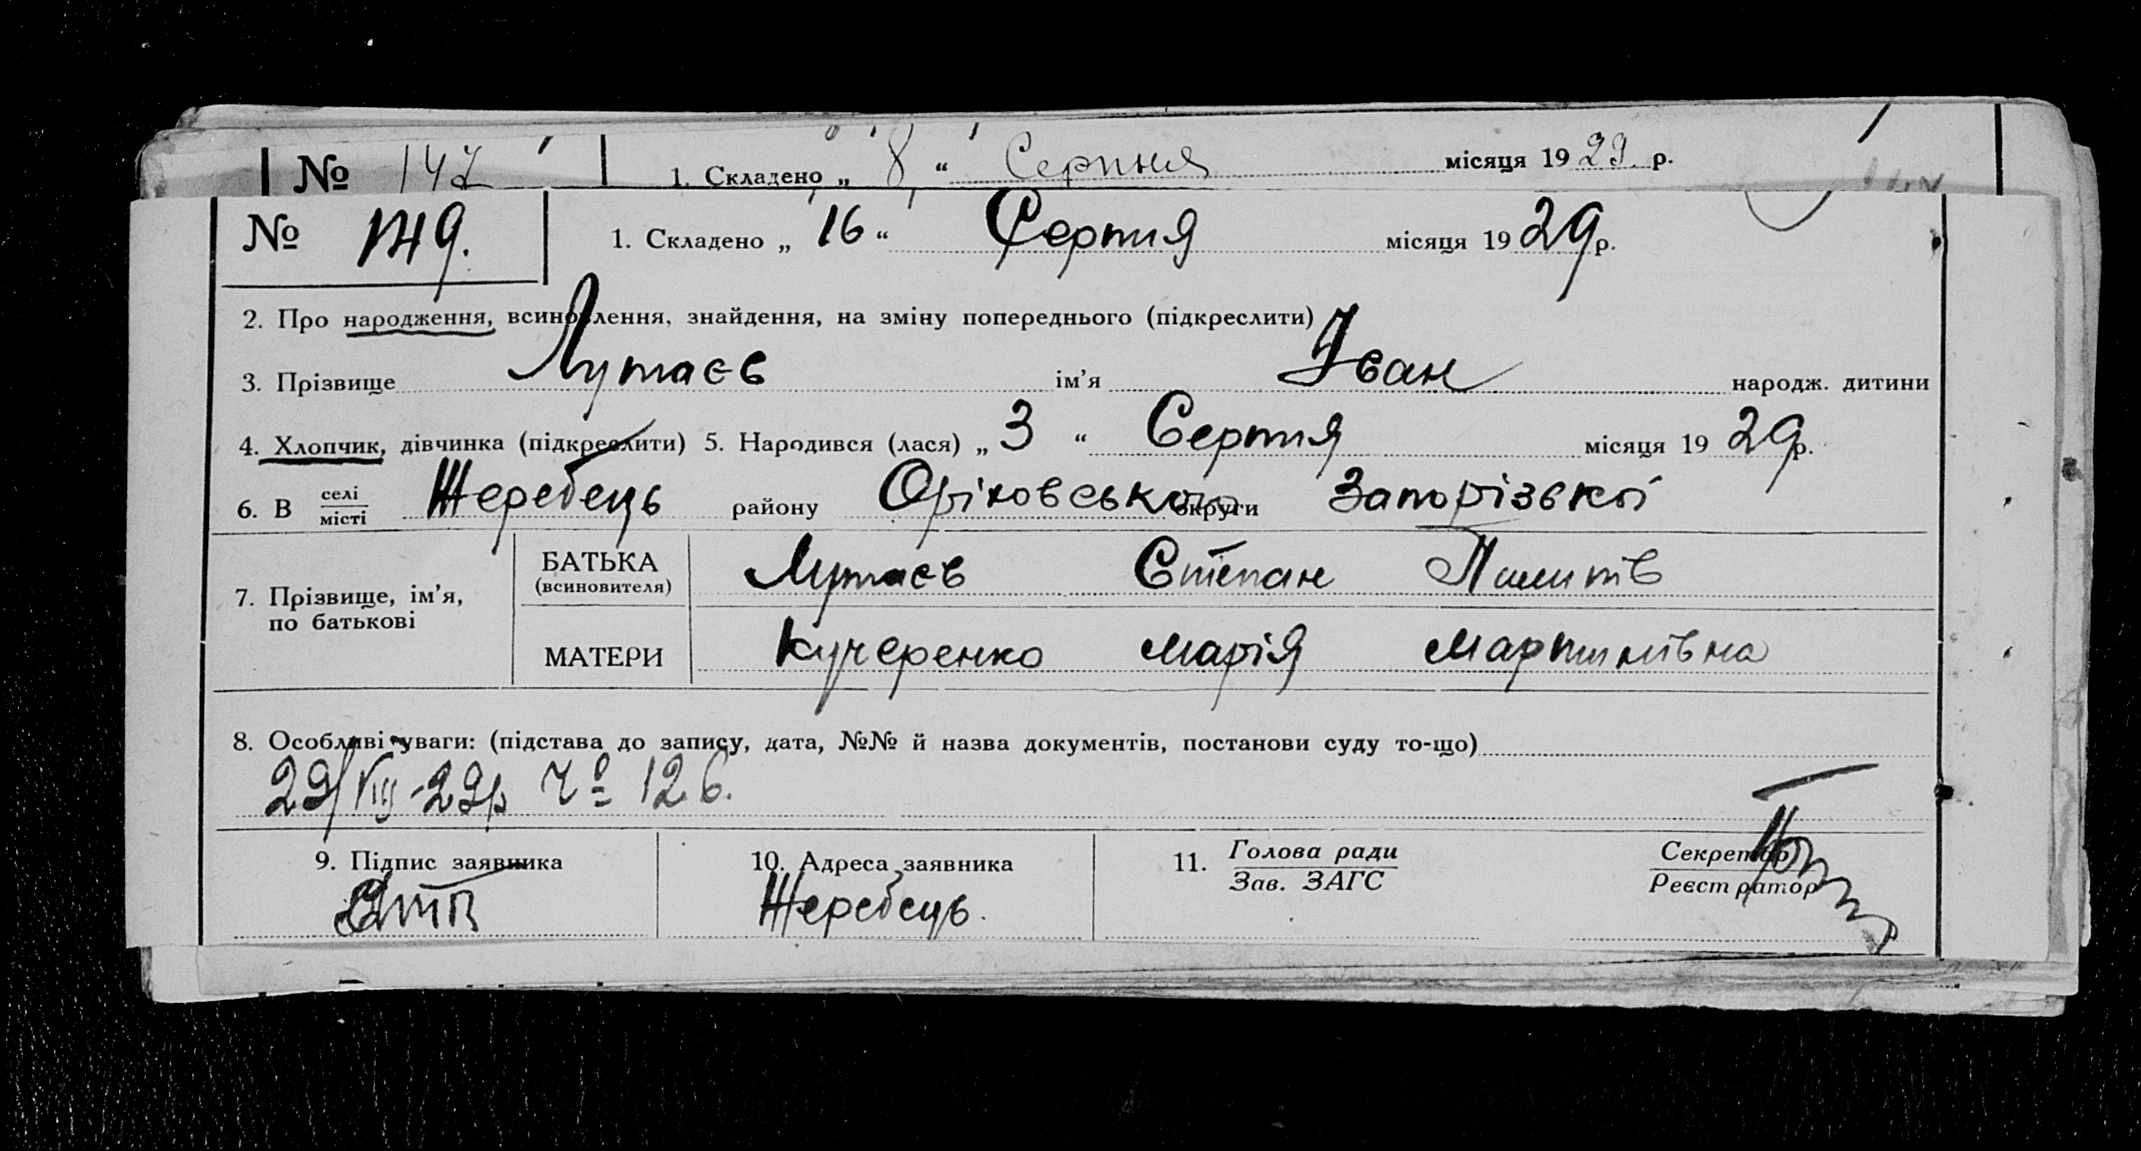 № 147 1. Складено „ 8 “ Серпня місяця 1929 р.
№ 149. 1. Складено „ 16 “ Серпня місяця 1929 р.
2. Про народження, всиновлення, знайдення, на зміну попереднього (підкреслити)
3. Прізвище Лутаєв ім’я Іван народж. дитини
4. Хлопчик, дівчинка (підкреслити) 5. Народився (лася) „ 3 “ Серпня місяця 1929 р.
6. В селі/місті Жеребець району Оріховського округи Запорізької
7. Прізвище, ім’я, по батькові
БАТЬКА (всиновителя) Лутаєв Степан
МАТЕРИ Кучеренко Марія Мартинівна
8. Особливі уваги: (підстава до запису, дата, №№ й назва документів, постанови суду то-що)
29/VIII-29р Ч° 126.
9. Підпис заявника 10. Адреса заявника 11. Голова ради/Зав. ЗАГС Секретар/Реєстратор
Жеребець.